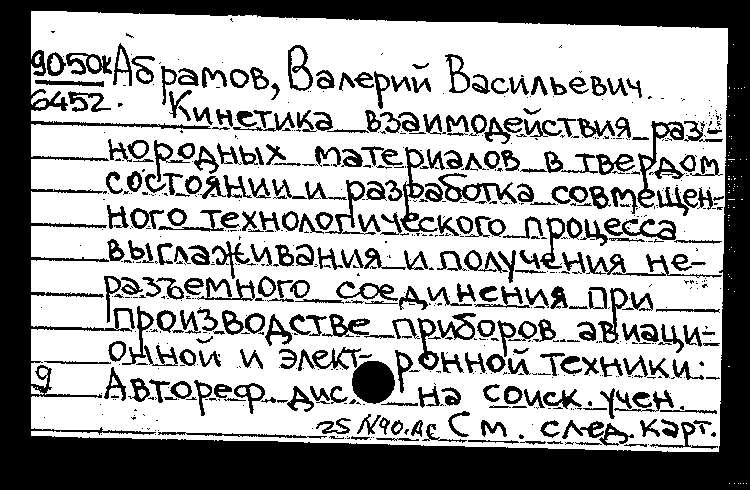 9050к Абрамов, Валерий Васильевич.
6452. Кинетика взаимодействия раз-
нородных материалов в твердом
состоянии и разработка совмещен-
ного технологического процесса
выглаживания и получения не-
разъемного соединения при
производстве приборов авиаци-
онной и элект- ронной техники:
9 Автореф. дис. на соиск. учен.
См. след. карт.